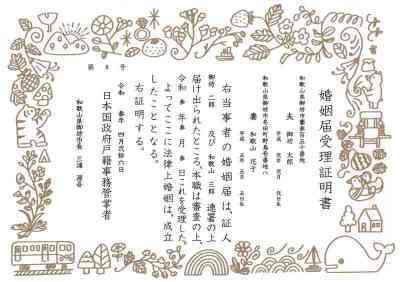 婚姻届受理証明書
和歌山県御坊市薗番百五十番地
夫 御坊 太郎
和歌山県御坊市名田町野島壱番地八
妻 和歌山 花子
右当事者の婚姻届は、証人
御坊 二郎 及び 和歌山 三郎 連署の上
届け出られたところ、本職は審査の上、
令和 参 年 参 月 参 日これを受理した。
よってここに法律上婚姻は、成立
したこととなる。
右証明する。
第 号
令和 参年 四月 弐拾六日
日本国政府戸籍事務管掌者
和歌山県御坊市長 三浦 源吾